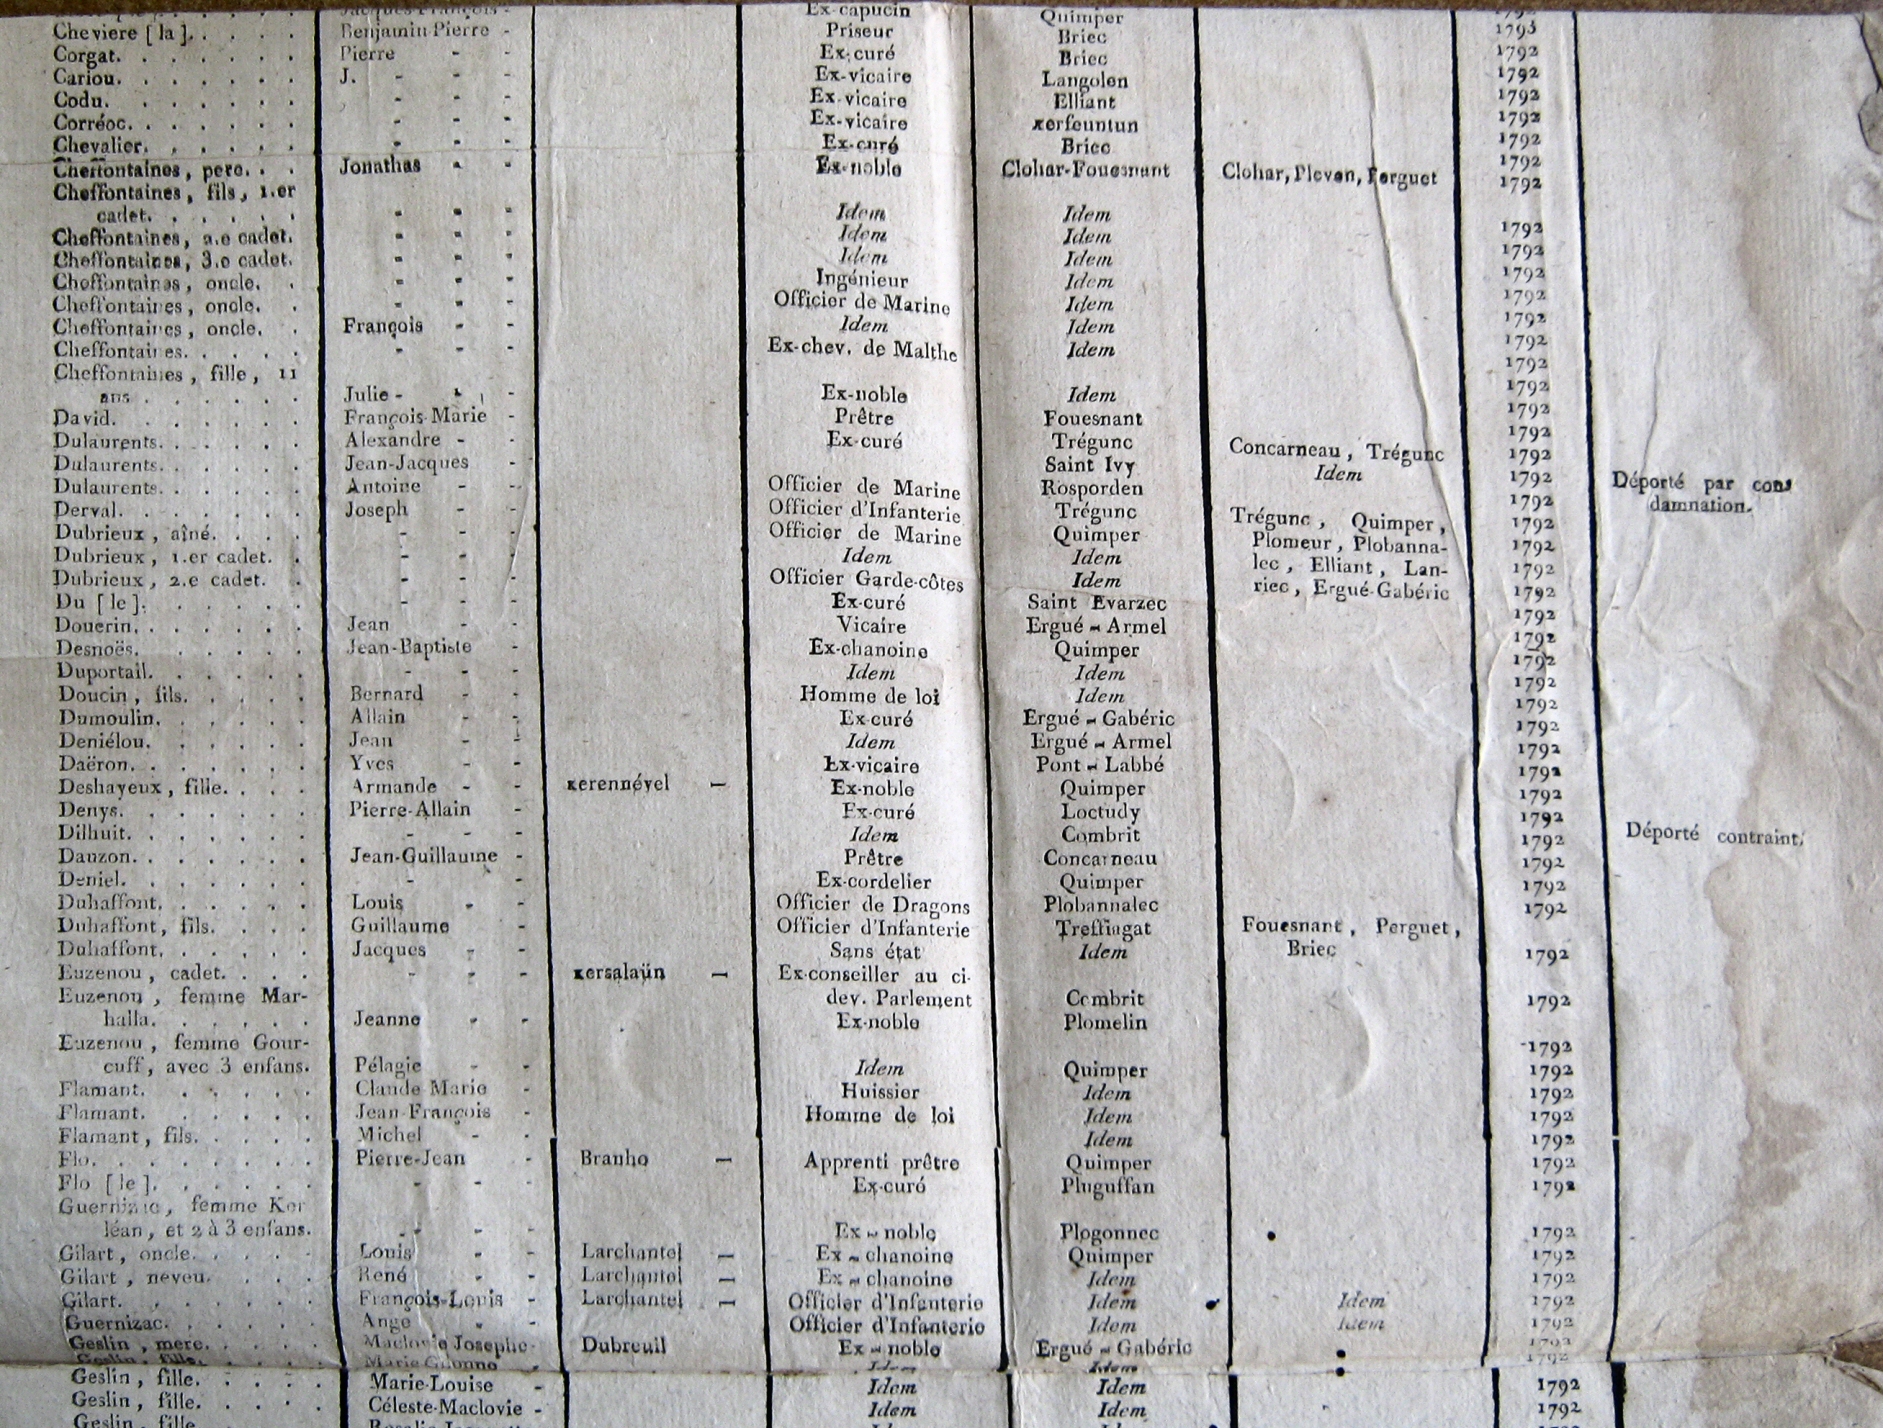 Jacques François - Ex-capucin Quimper 1792
Cheviere [ la ]. Benjamin Pierre - Priseur Briec 1793
Corgat. Pierre - - Ex-curé Briec 1792
Cariou. J. - - - Ex-vicaire Langolen 1792
Codu. - - - Ex-vicaire Elliant 1792
Corréoc. - - - Ex-vicaire Kerfeuntun 1792
Chevalier. - - - Ex-curé Briec 1792
Cheffontaines, pere. Jonathas - - Ex-noble Clohar-Fouesnant Clohar, Pleven, Perguet 1792
Cheffontaines, fils, 1.er 1792
cadet. - - - Idem Idem
Cheffontaines, 2.e cadet. - - - Idem Idem 1792
Cheffontaines, 3.e cadet. - - - Idem Idem 1792
Cheffontaines, oncle. - - - Ingénieur Idem 1792
Cheffontaines, oncle. - - - Officier de Marine Idem 1792
Cheffontaines, oncle. François - - Idem Idem 1792
Cheffontaines. - - - Ex-chev. de Malthe Idem 1792
Cheffontaines, fille, 11 1792
ans Julie - - Ex-noble Idem 1792
David. François-Marie - Prêtre Fouesnant 1792
Dulaurents. Alexandre - - Ex-curé Trégunc Concarneau, Trégunc 1792
Dulaurents. Jean-Jacques - Saint Ivy Idem 1792
Dulaurents. Antoine - - Officier de Marine Rosporden 1792 Déporté par con-
Derval. Joseph - - Officier d'Infanterie Trégunc Trégunc, Quimper, 1792 damnation.
Dubrieux, aîné. - - Officier de Marine Quimper Plomeur, Plobanna- 1792
Dubrieux, 1.er cadet. - - - Idem Idem lec, Elliant, Lan- 1792
Dubrieux, 2.e cadet. - - - Officier Garde-côtes Idem riec, Ergué-Gabéric 1792
Du [ le ]. - - - Ex-curé Saint Evarzec 1792
Douerin. Jean - - Vicaire Ergué-Armel 1792
Desnoës. Jean-Baptiste - - Ex-chanoine Quimper 1792
Duportail. - - - Idem Idem 1792
Doucin, fils. Bernard - - Homme de loi Idem 1792
Dumoulin. Allain - - Ex-curé Ergué-Gabéric 1792
Deniélou. Jean - - Idem Ergué-Armel 1792
Daëron. Yves - - Ex-vicaire Pont-Labbé 1792
Deshayeux, fille. Armande - - Kerennével - Ex-noble Quimper 1792
Denys. Pierre-Allain - Ex-curé Loctudy 1792
Dilhuit. - - - Idem Combrit 1792 Déporté contraint.
Dauzon. Jean-Guillaume - Prêtre Concarneau 1792
Deniel. - - Ex-cordelier Quimper 1792
Duhaffont. Louis - - Officier de Dragons Plobannalec 1792
Duhaffont, fils. Guillaume - Officier d'Infanterie Treffiagat Fouesnant, Perguet,
Duhaffont. Jacques - - Sans état Idem Briec 1792
Euzenou, cadet. - - - Kersalaün - Ex-conseiller au ci-
dev. Parlement Combrit 1792
Euzenou, femme Mar-
halla. Jeanne - - Ex-noble Plomelin
Euzenou, femme Gour- 1792
cuff, avec 3 enfans. Pélagie - - Idem Quimper 1792
Flamant. Claude Marie - Huissier Idem 1792
Flamant. Jean-François - Homme de loi Idem 1792
Flamant, fils. Michel - - Idem 1792
Flo. Pierre-Jean - Branho - Apprenti prêtre Quimper 1792
Flo [ le ]. - - - Ex-curé Pluguffan 1792
Guernizac, femme Ker
léan, et 2 à 3 enfans. - - - Ex-noble Plogonnec 1792
Gilart, oncle. Louis - - Larchantel - Ex-chanoine Quimper 1792
Gilart, neveu. René - - Larchantel - Ex-chanoine Idem 1792
Gilart. François-Louis - Larchantel - Officier d'Infanterie Idem Idem 1792
Guernizac. Ange - - Officier d'Infanterie Idem Idem 1792
Geslin, mere. Maclovie Josephe- Dubreuil Ex-noble Ergué-Gabéric 1792
Geslin, fille. Marie Idem Idem 1792
Geslin, fille. Marie-Louise - Idem Idem 1792
Geslin, fille. Céleste-Maclovie - Idem Idem 1792
Geslin, fille